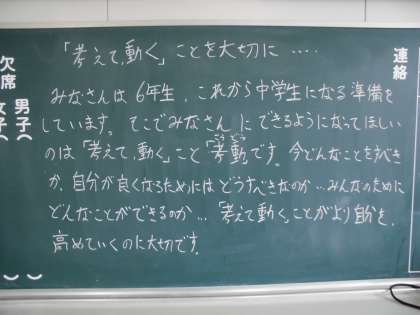 「考えて、動く」ことを大切に ‥‥
みなさんは6年生、これから中学生になる準備を
しています。そこでみなさんにできるようになってほしい
のは「考えて、動く」こと「考動」です。今どんなことをすべき
か、自分が良くなるためにはどうすべきなのか…みんなのために
どんなことができるのか…「考えて動く」ことがより自分を、
高めていくのに大切です。
連絡
欠席
男子（
女子（
）
）